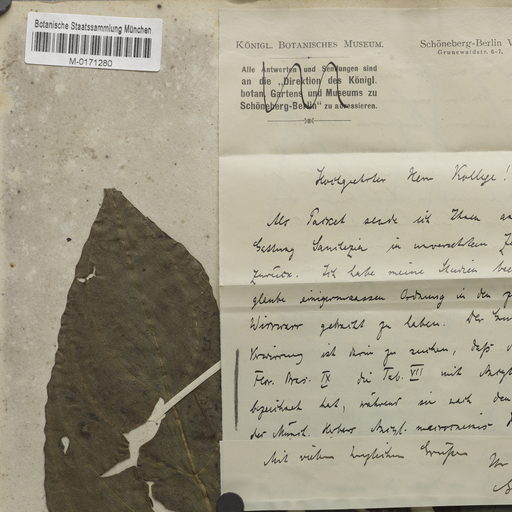 Botanische Staatssammlung München
M-0171280
KÖNIGL. BOTANISCHES MUSEUM.
Schöneberg-Berlin
Grunewaldstr. 6-7.
Alle Antworten und Sendungen sind
an die „Direktion des Königl.
botan. Gartens und Museums zu
Schöneberg-Berlin“ zu adressieren.
Hochgeehrter Herr Kollege!
Als Packet sende ich Ihnen
Gattung in
zurück. Ich habe meine Studien
glaube einigermassen Ordnung in den
Wirrwarr gebracht zu haben. Der
Verwirrung ist darin zu suchen, daß
Flor. Bras. IX die Tab. VII mit
bezeichnet hat, während sie nach den
der Münch. Herbars
Mit vielen Grüßen